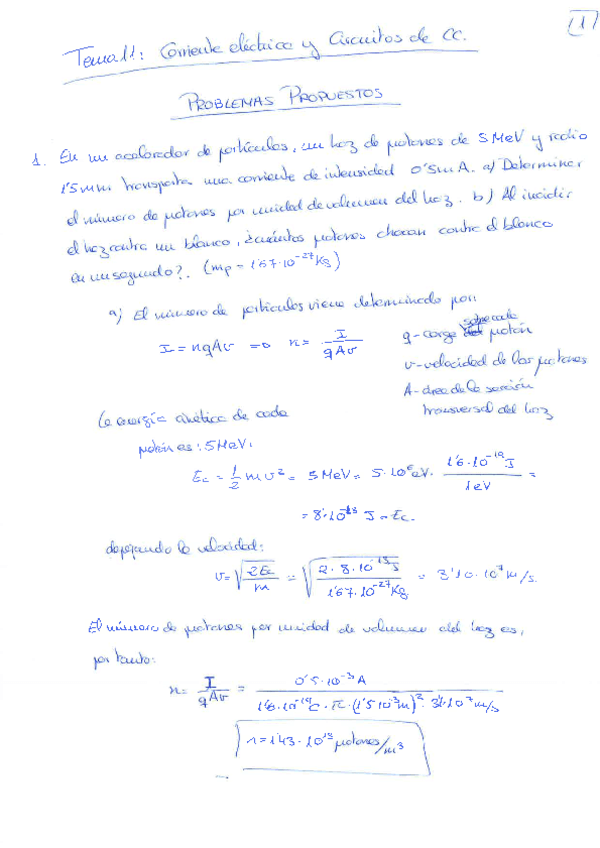 1
Tema 11: Corriente eléctrica y Circuitos de CC.
PROBLEMAS PROPUESTOS
1. En un acelerador de partículas, un haz de protones de 5 MeV y radio
1'5 mm transporta una corriente de intensidad 0'5 mA. a) Determinar
el número de protones por unidad de volumen del haz. b) Al incidir
el haz contra un blanco, ¿cuántos protones chocan contra el blanco
en un segundo?. (mp = 1'67·10⁻²⁷ Kg)
a) El número de partículas viene determinado por:
I = nqAv => n = I / qAv
q - carga de cada protón
v - velocidad de los protones
A - área de la sección
transversal del haz
La energía cinética de cada
protón es: 5 MeV:
Ec = 1/2 m v² = 5 MeV = 5·10⁶ eV · 1'6·10⁻¹⁹ J / 1 eV =
= 8·10⁻¹³ J = Ec.
despejando la velocidad:
v = √(2Ec / m) = √(2·8·10⁻¹³ J / 1'67·10⁻²⁷ Kg) = 3'10·10⁷ m/s.
El número de protones por unidad de volumen del haz es,
por tanto:
n = I / qAv = 0'5·10⁻³ A / 1'6·10⁻¹⁹ C · π · (1'5·10⁻³ m)² · 3'1·10⁷ m/s
n = 1'43·10¹³ protones/m³